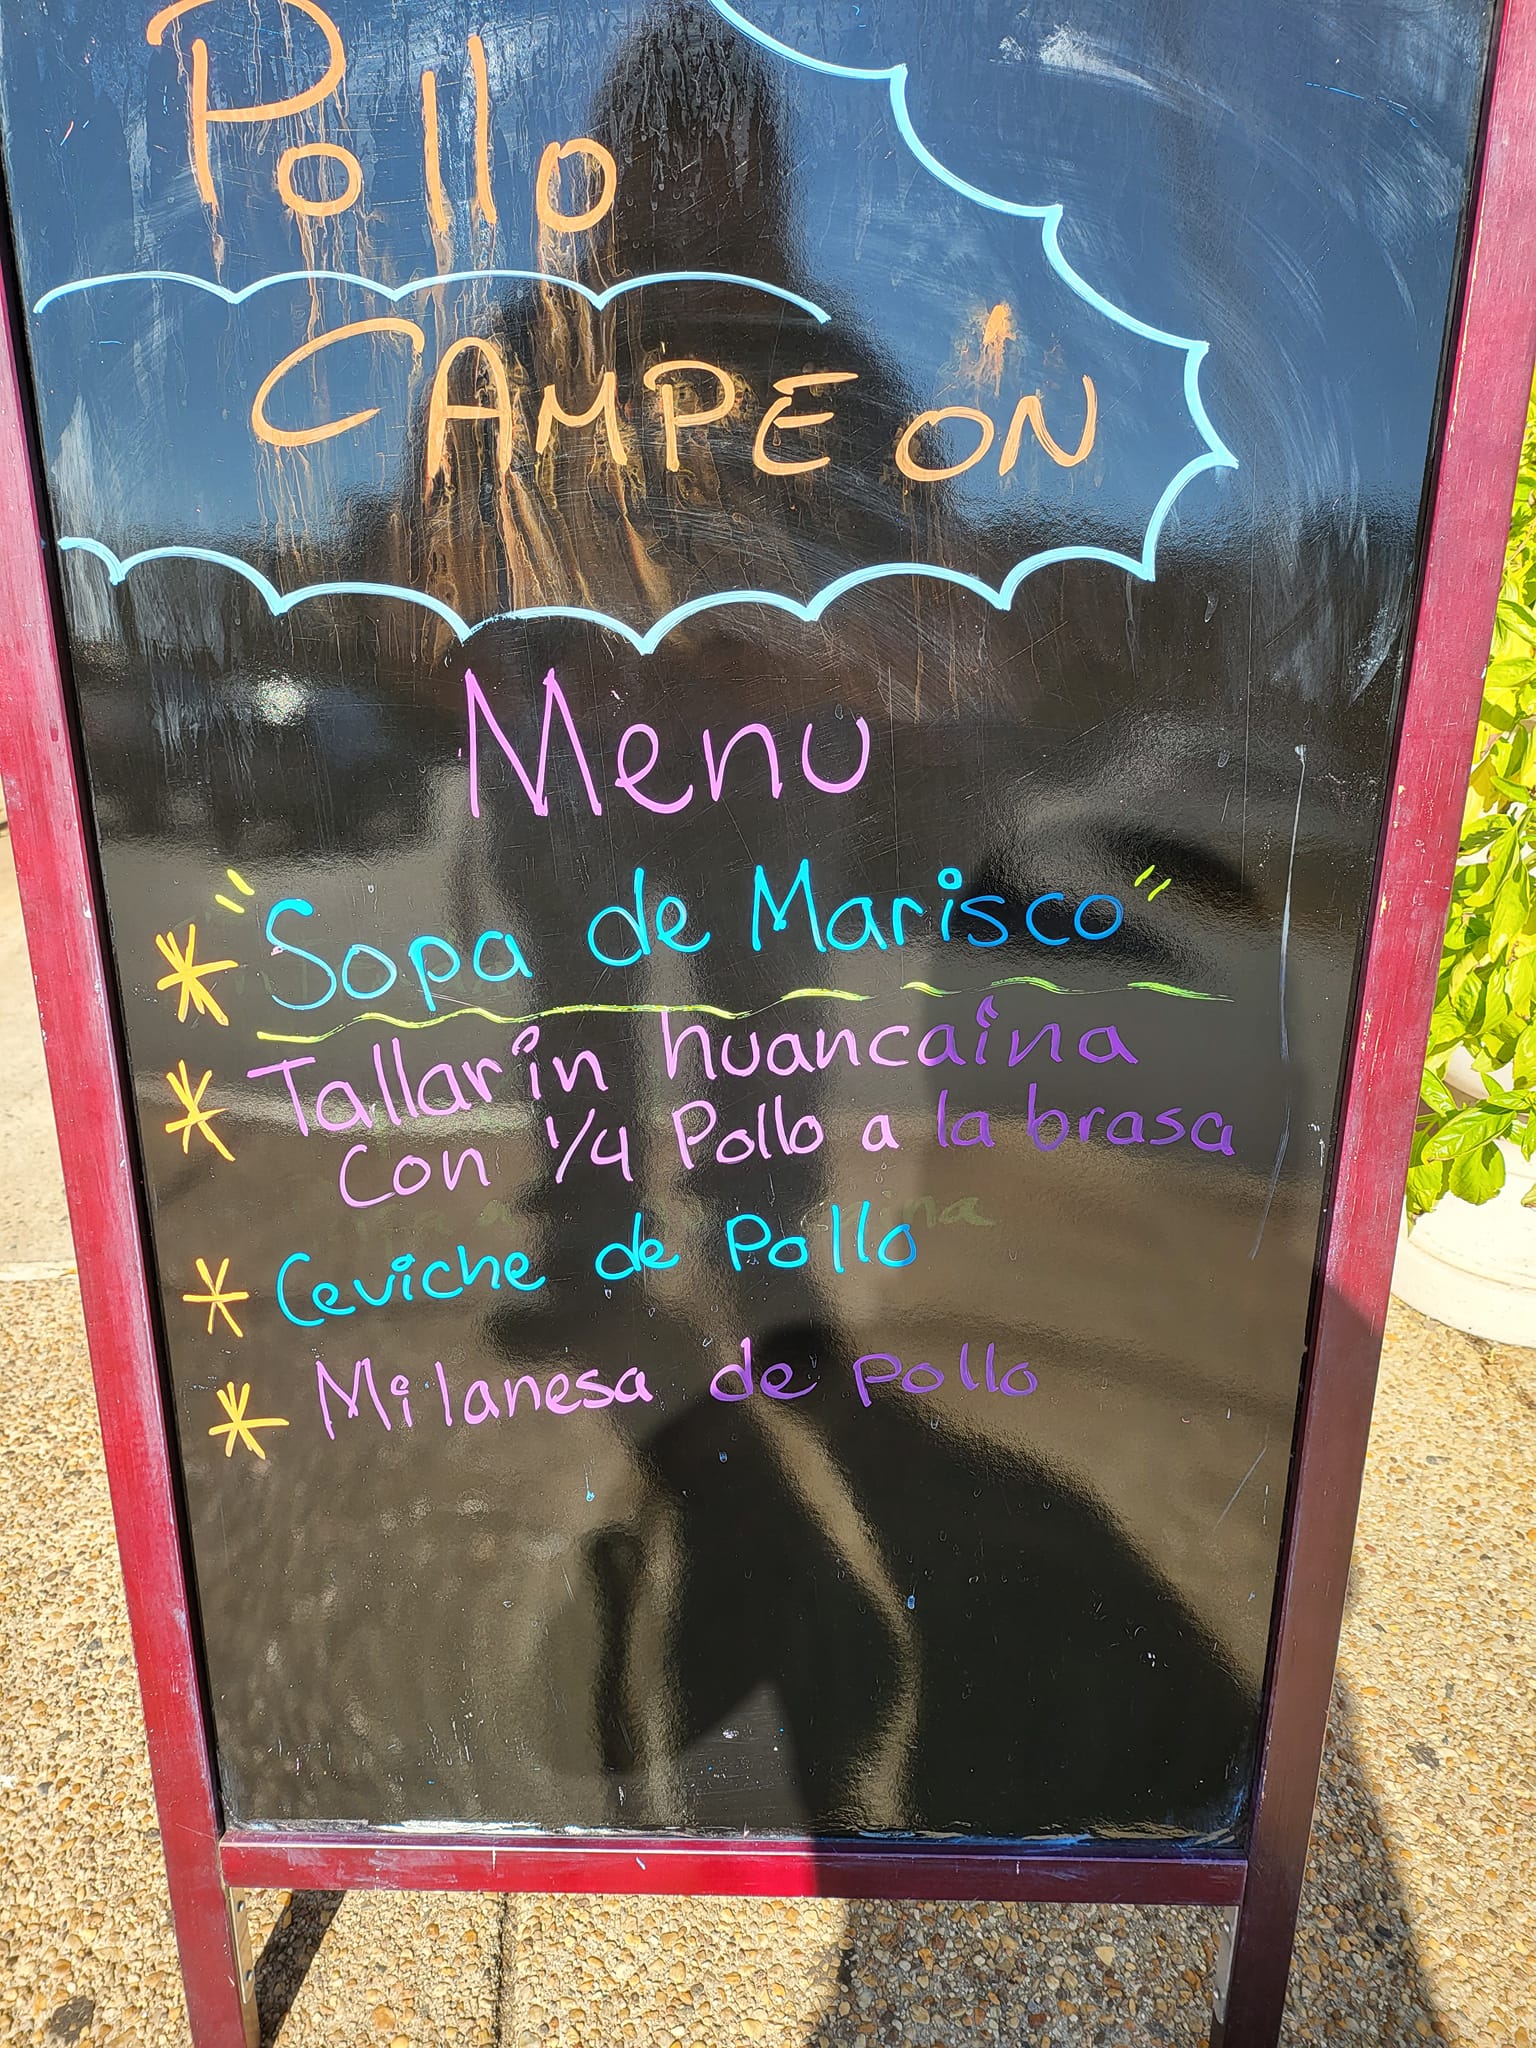 Pollo
CAMPEÓN
Menu
* "Sopa de Marisco"
* Tallarin huancaina
con 1/4 Pollo a la brasa
* Ceviche de Pollo
* Milanesa de pollo